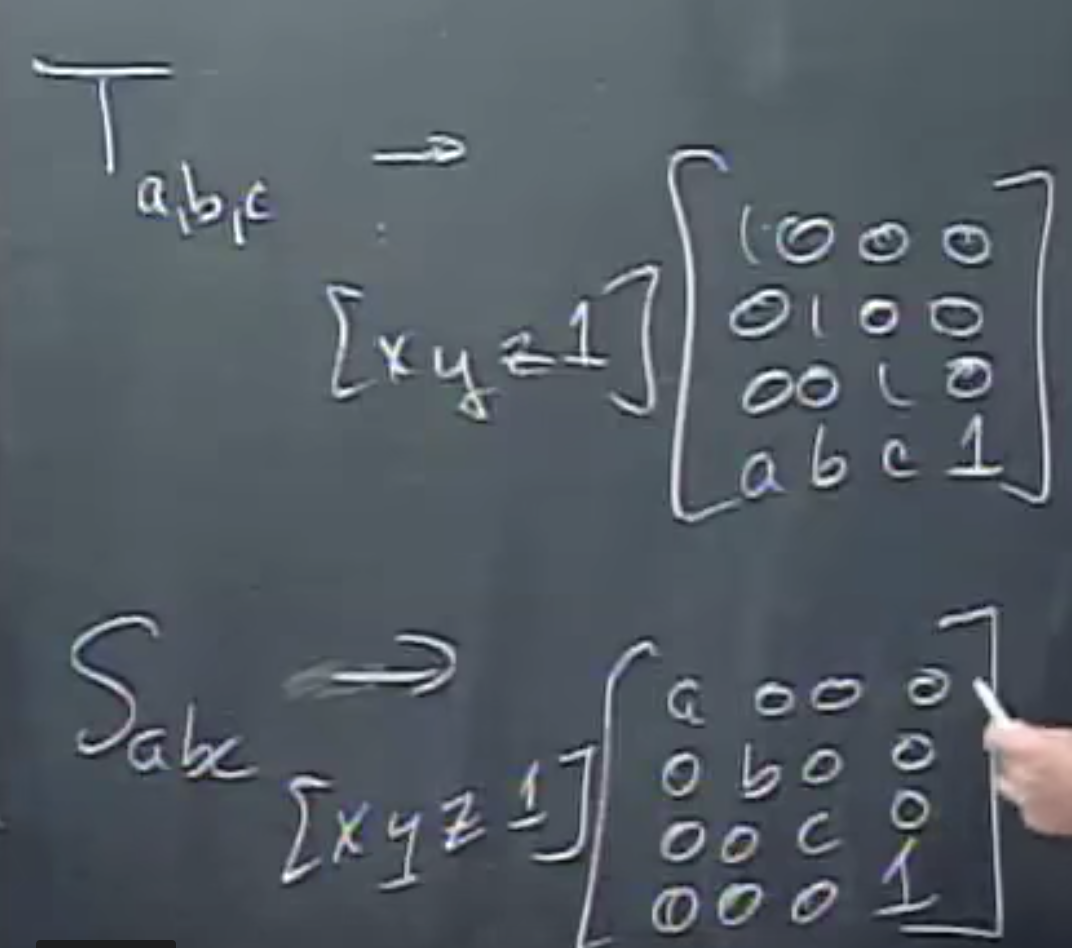 T a,b,c →
[x y z 1] [1 0 0 0
0 1 0 0
0 0 1 0
a b c 1]
S abc →
[x y z 1] [a 0 0 0
0 b 0 0
0 0 c 0
0 0 0 1]